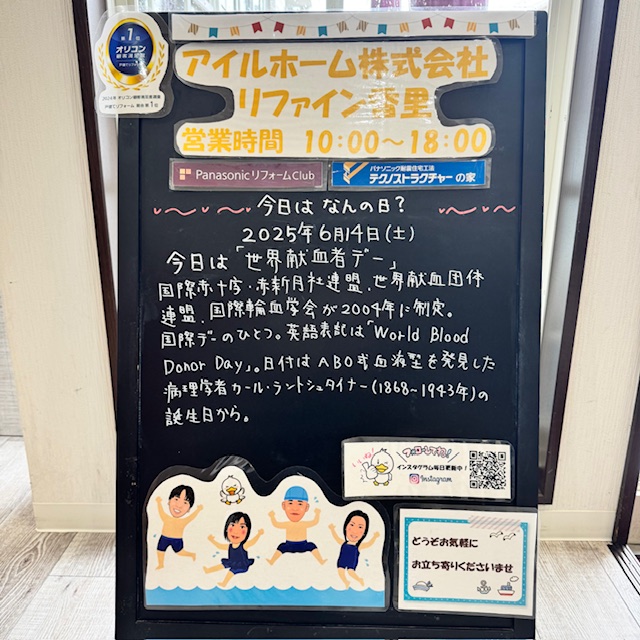 第1位
オリコン
顧客満足度
戸建てリフォーム
2024年 オリコン顧客満足度調査
戸建てリフォーム 総合 第1位
アイルホーム株式会社
リファイン香里
営業時間 10:00～18:00
Panasonic リフォームClub
パナソニック耐震住宅工法
テクノストラクチャーの家
今日は なんの日?
2025年6月14日(土)
今日は「世界献血者デー」
国際赤十字・赤新月社連盟、世界献血団体
連盟、国際輸血学会が2004年に制定。
国際デーのひとつ。英語表記は「World Blood
Donor Day」。日付はABO式血液型を発見した
病理学者カール・ラントシュタイナー(1868～1943年)の
誕生日から。
フォローしてね!
インスタグラム毎日更新中!
Instagram
どうぞお気軽に
お立ち寄りくださいませ